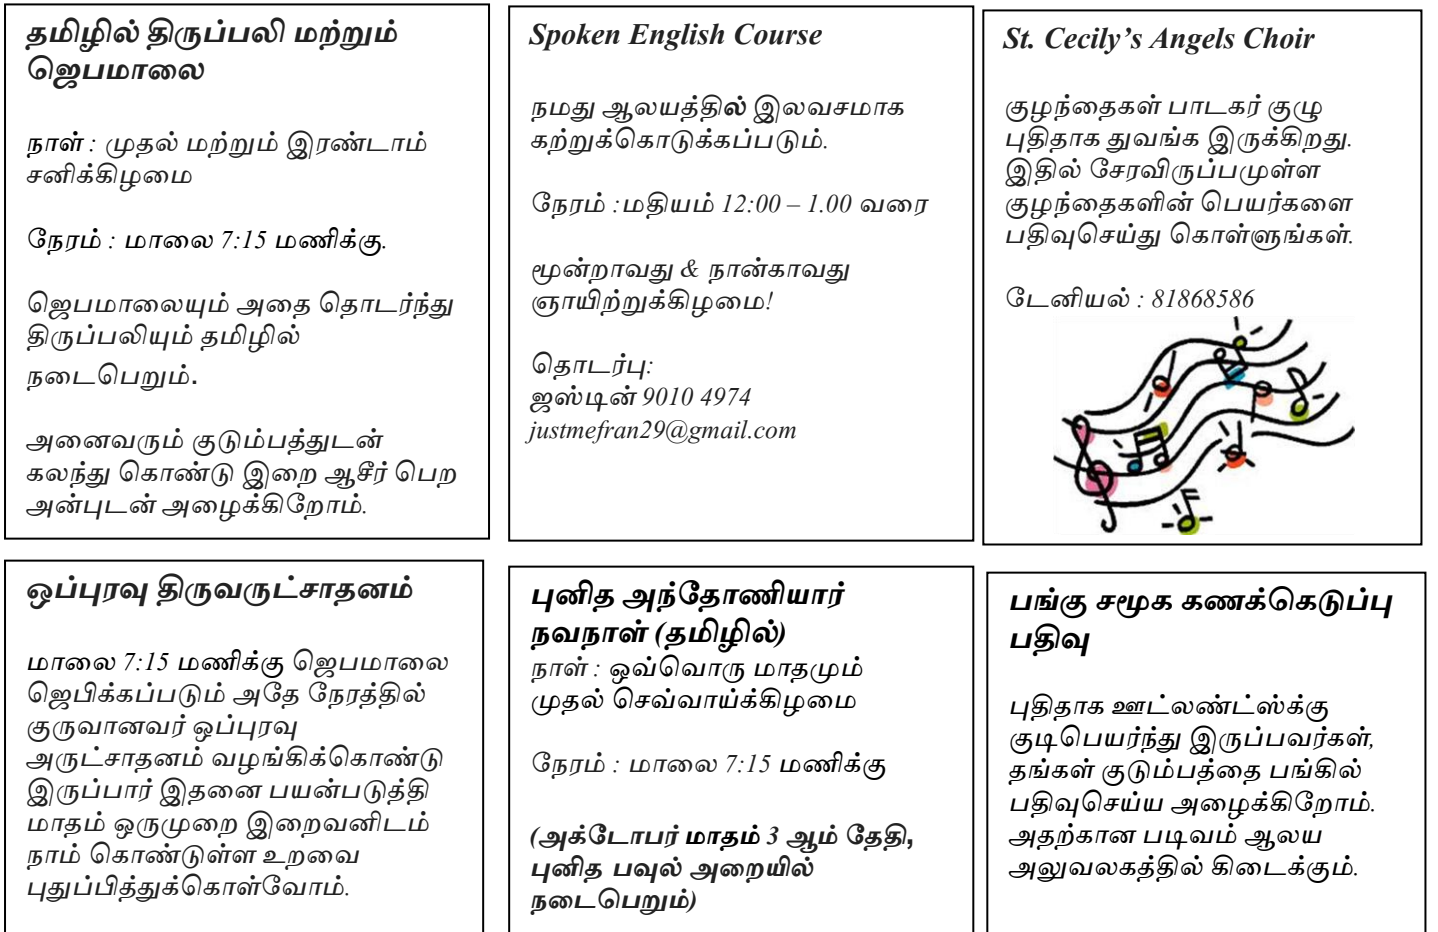 தமிழில் திருப்பலி மற்றும்
ஜெபமாலை
நாள் : முதல் மற்றும் இரண்டாம்
சனிக்கிழமை
நேரம் : மாலை 7:15 மணிக்கு.
ஜெபமாலையும் அதை தொடர்ந்து
திருப்பலியும் தமிழில்
நடைபெறும்.
அனைவரும் குடும்பத்துடன்
கலந்து கொண்டு இறை ஆசீர் பெற
அன்புடன் அழைக்கிறோம்.
Spoken English Course
நமது ஆலயத்தில் இலவசமாக
கற்றுக்கொடுக்கப்படும்.
நேரம் :மதியம் 12:00 – 1.00 வரை
மூன்றாவது & நான்காவது
ஞாயிற்றுக்கிழமை!
தொடர்பு:
ஜஸ்டின் 9010 4974
justmefran29@gmail.com
St. Cecily’s Angels Choir
குழந்தைகள் பாடகர் குழு
புதிதாக துவங்க இருக்கிறது.
இதில் சேரவிருப்பமுள்ள
குழந்தைகளின் பெயர்களை
பதிவுசெய்து கொள்ளுங்கள்.
டேனியல் : 81868586
ஒப்புரவு திருவருட்சாதனம்
மாலை 7:15 மணிக்கு ஜெபமாலை
ஜெபிக்கப்படும் அதே நேரத்தில்
குருவானவர் ஒப்புரவு
அருட்சாதனம் வழங்கிக்கொண்டு
இருப்பார் இதனை பயன்படுத்தி
மாதம் ஒருமுறை இறைவனிடம்
நாம் கொண்டுள்ள உறவை
புதுப்பித்துக்கொள்வோம்.
புனித அந்தோணியார்
நவநாள் (தமிழில்)
நாள் : ஒவ்வொரு மாதமும்
முதல் செவ்வாய்க்கிழமை
நேரம் : மாலை 7:15 மணிக்கு
(அக்டோபர் மாதம் 3 ஆம் தேதி,
புனித பவுல் அறையில்
நடைபெறும்)
பங்கு சமூக கணக்கெடுப்பு
பதிவு
புதிதாக ஊட்லண்ட்ஸ்க்கு
குடிபெயர்ந்து இருப்பவர்கள்,
தங்கள் குடும்பத்தை பங்கில்
பதிவுசெய்ய அழைக்கிறோம்.
அதற்கான படிவம் ஆலய
அலுவலகத்தில் கிடைக்கும்.